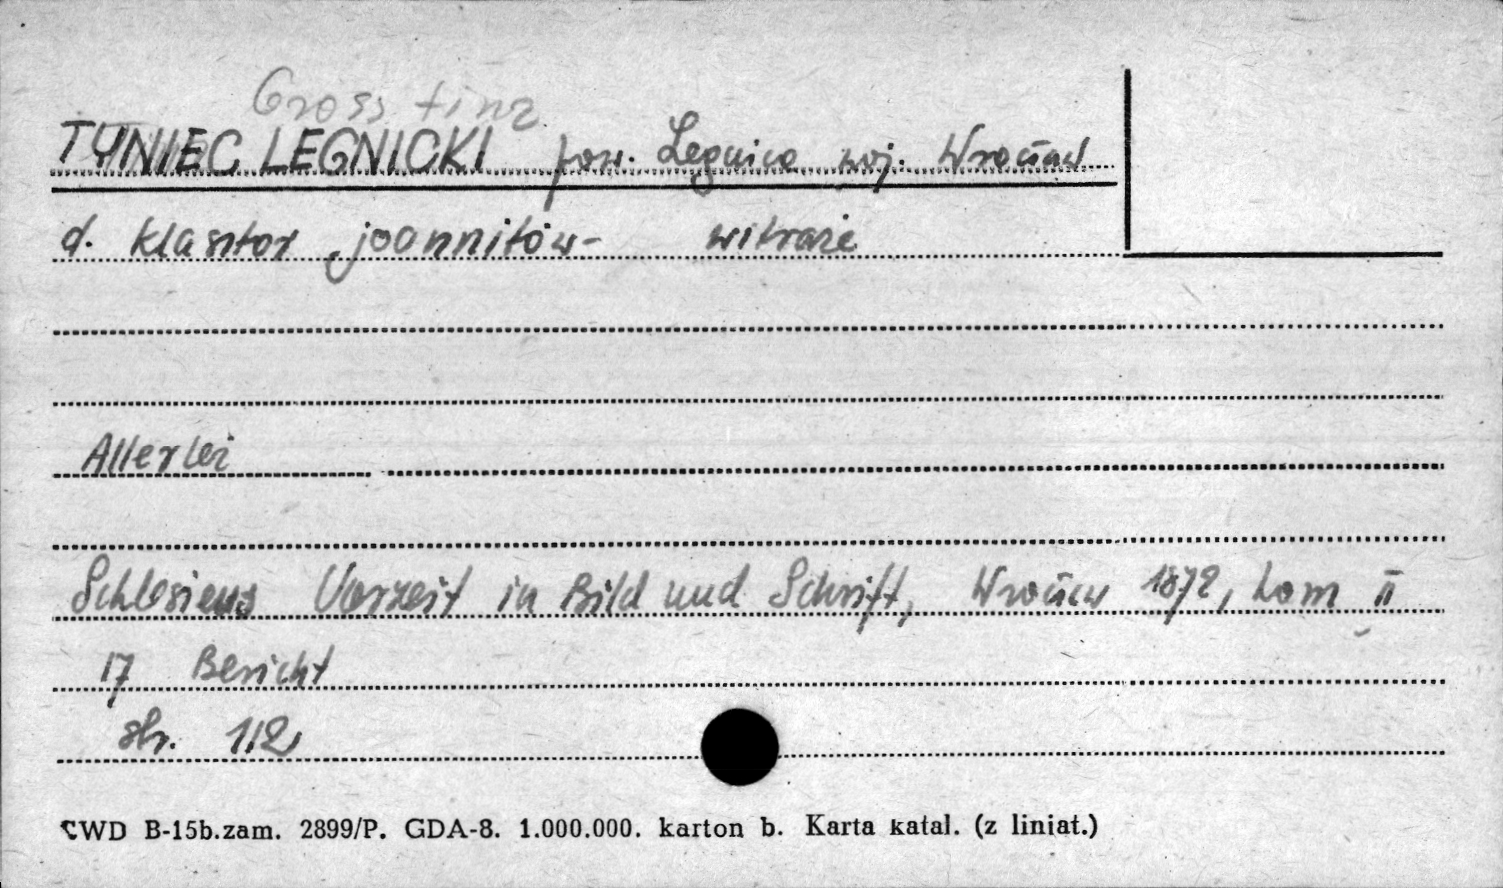 Gross tinz
TYNIEC LEGNICKI pow. Legnica woj. Wrocław
d. klasztor joannitów - witraże
Allerlei
Schlesiens Vorzeit in Bild und Schrift, Wrocław 1872, tom II
17 Bericht
str. 112
CWD B-15b.zam. 2899/P. GDA-8. 1.000.000. karton b. Karta katal. (z liniat.)